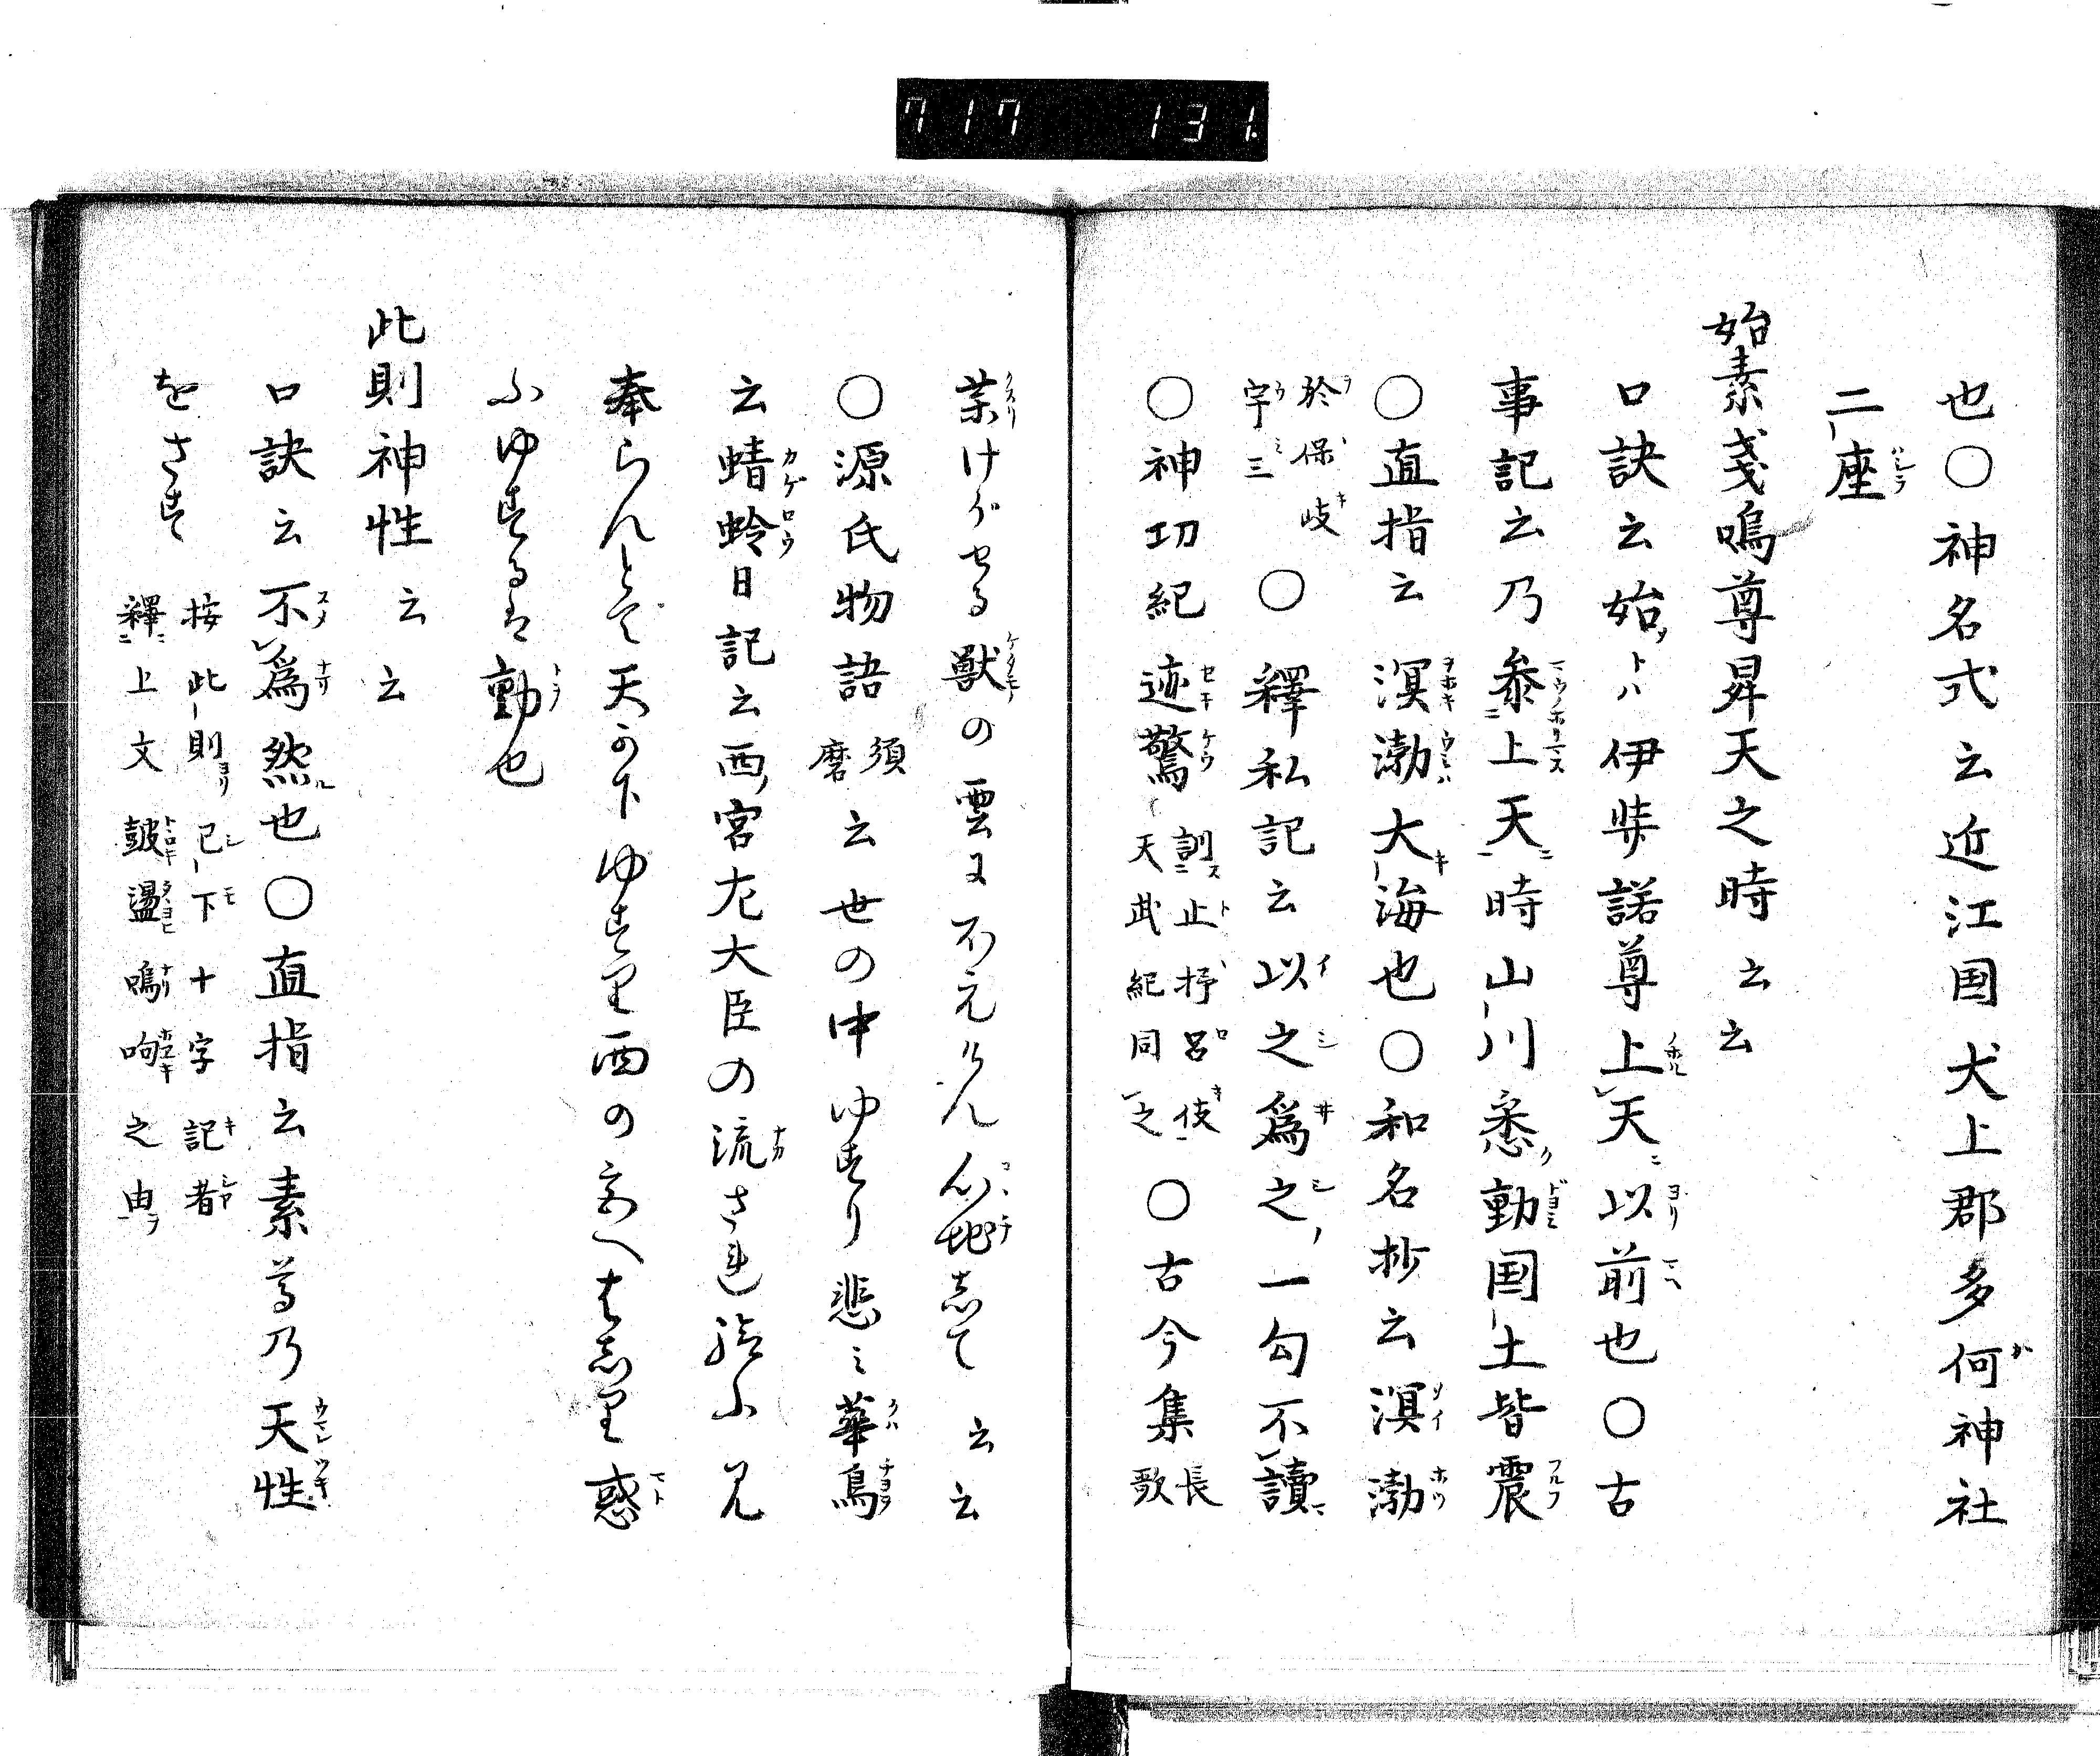 717 131.
也〇神名式云近江国犬上郡多何神社
二座
始素戔嗚尊昇天之時云云
口訣云始トハ伊弉諾尊上天以前也〇古
事記云乃参上天時山川悉動国土皆震
〇直指云溟渤大海也〇和名抄云溟渤
於保岐
宇三〇釋私記云以之爲之一句不讀
〇神功紀迹驚訓止抒呂伎
天武紀同之〇古今集長
歌
けがせる獣の雲に
〇源氏物語須
磨云世の中ゆすり悲ミ華鳥
云蜻蛉日記云西宮左大臣の流され給ふ見
奉らんとて天の下ゆすりて西の宮へはしりて惑
ふゆするは動也
此則神性云云
口訣云不爲然也〇直指云素尊乃天性
をさす按此則已下十字記者
釋上文皷盪鳴呴之由